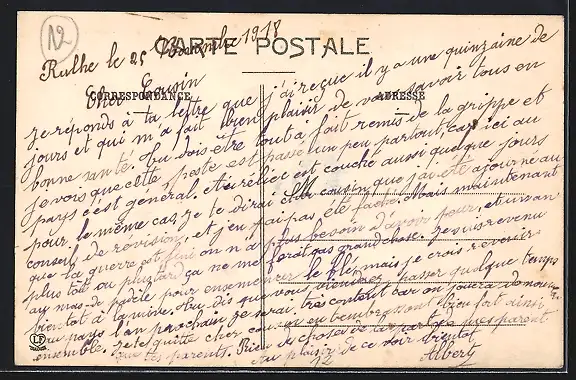 12
CARTE POSTALE
CORRESPONDANCE
ADRESSE
Rulhe le 25 Novembre 1918
Cher Cousin
Je réponds à ta lettre que j'ai reçue il y a une quinzaine de
jours et qui m'a fait bien plaisir de vous savoir tous en
bonne santé. Tu dois etre tout à fait remis de la grippe et
je vois que cette peste est passé un peu partout, car ici au
pays c'est général. Aurélie est couché aussi quelque jours
pour le même cas. Je te dirai cher cousin que j'ai été ajourné au
conseil de révision, et j'en ai pas été faché. Mais maintenant
que la guerre est fini on n'a plus besoin d'avoir peur, et un an
plus tôt ou plus tard ça ne me ferait pas grand chose. Je suis revenu
au mas de pour ensemencer le blé, mais je crois revenir
bientôt à la mine. Tu dis que vous viendrez passer quelque temps
au pays l'an prochain je serai très content car on jouera de nouveau
ensemble. Je te quitte cher cousin en t'embrassant bien fort ainsi
que tes parents. Bien de choses de ca part à tes parent
Au plaisir de ce voir bientôt
Albert
12
LF